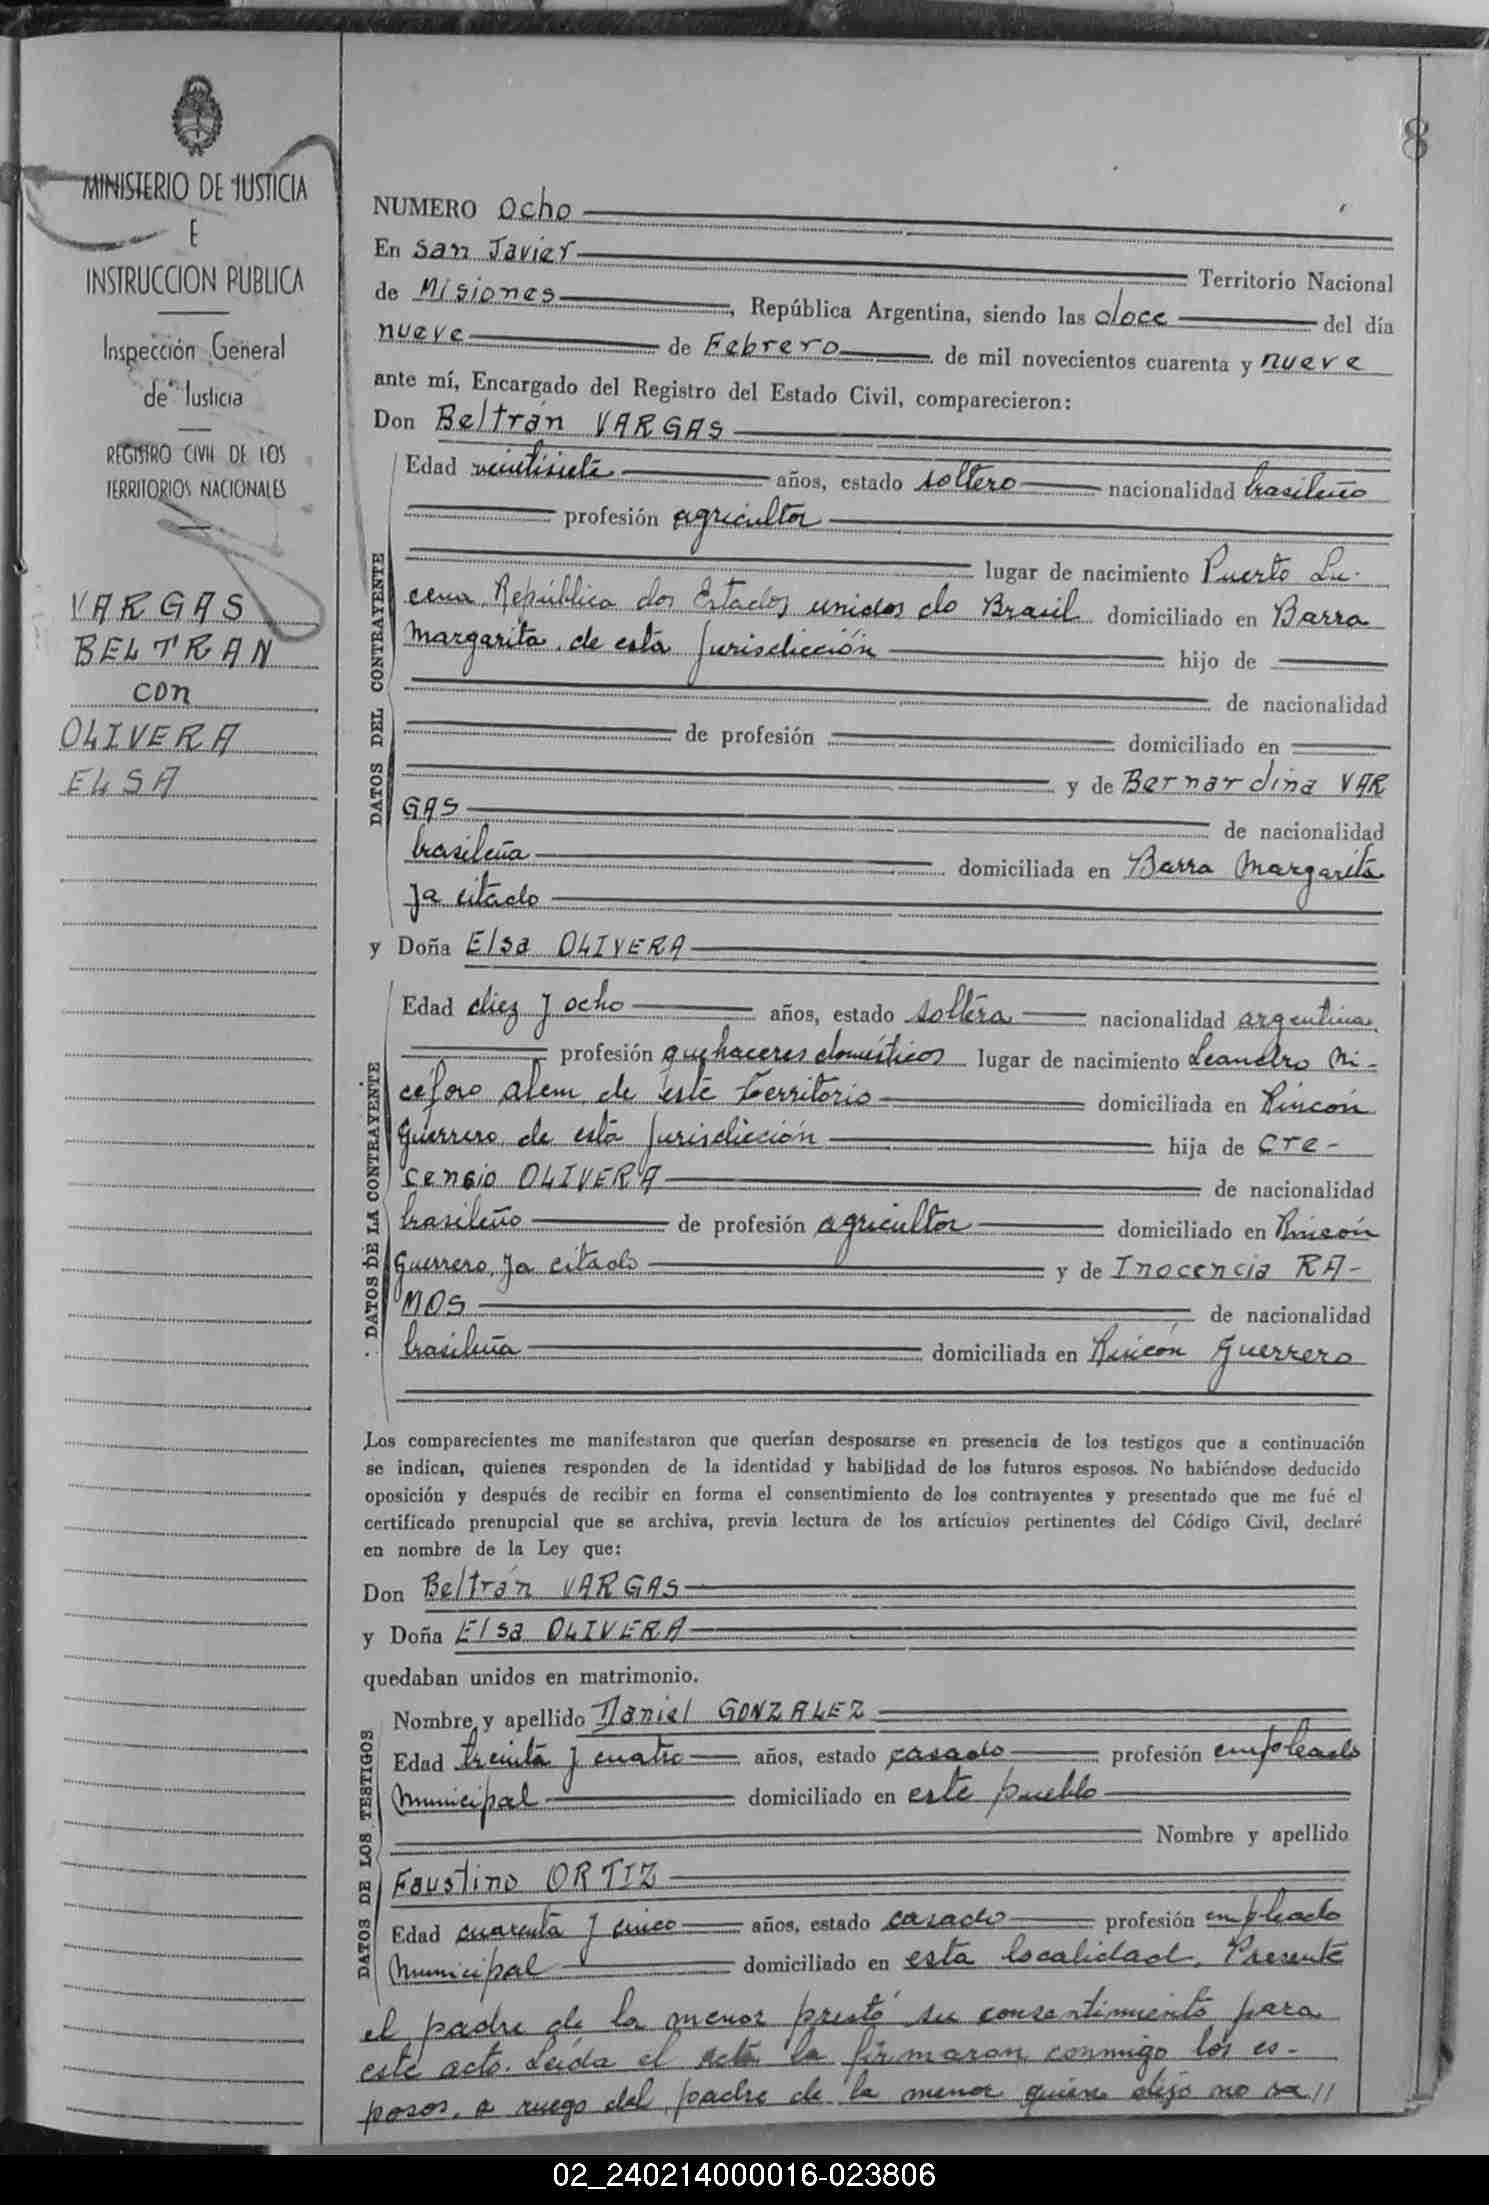 8
MINISTERIO DE JUSTICIA
E
INSTRUCCION PUBLICA
Inspección General
de Justicia
REGISTRO CIVIL DE LOS
TERRITORIOS NACIONALES
VARGAS
BELTRAN
con
OLIVERA
ELSA
NUMERO Ocho
En San Javier Territorio Nacional
de Misiones, República Argentina, siendo las doce del día
nueve de Febrero de mil novecientos cuarenta y nueve
ante mí, Encargado del Registro del Estado Civil, comparecieron:
Don Beltrán VARGAS
DATOS DEL CONTRAYENTE
Edad veintisiete años, estado soltero nacionalidad brasileño
profesión agricultor
lugar de nacimiento Puerto Lu-
cena, República dos Estados unidos do Brasil domiciliado en Barra
Margarita, de esta jurisdicción hijo de
de nacionalidad
de profesión domiciliado en
y de Bernardina VAR
GAS de nacionalidad
brasileña domiciliada en Barra Margarita
ja citado
y Doña Elsa OLIVERA
DATOS DE LA CONTRAYENTE
Edad diez y ocho años, estado soltera nacionalidad argentina
profesión quehaceres domésticos lugar de nacimiento Leandro Ni-
céforo Alem, de este territorio domiciliada en Rincón
Guerrero, de esta jurisdicción hija de Cre-
censio OLIVERA de nacionalidad
brasileño de profesión agricultor domiciliado en Rincón
Guerrero, ja citado y de Inocencia RA-
MOS de nacionalidad
brasileña domiciliada en Rincón Guerrero
Los comparecientes me manifestaron que querían desposarse en presencia de los testigos que a continuación
se indican, quienes responden de la identidad y habilidad de los futuros esposos. No habiéndose deducido
oposición y después de recibir en forma el consentimiento de los contrayentes y presentado que me fué el
certificado prenupcial que se archiva, previa lectura de los artículos pertinentes del Código Civil, declaré
en nombre de la Ley que:
Don Beltrán VARGAS
y Doña Elsa OLIVERA
quedaban unidos en matrimonio.
DATOS DE LOS TESTIGOS
Nombre y apellido Daniel GONZALEZ
Edad treinta y cuatro años, estado casado profesión empleado
Municipal domiciliado en este pueblo
Nombre y apellido
Faustino ORTIZ
Edad cuarenta y cinco años, estado casado profesión empleado
Municipal domiciliado en esta localidad. Presente
el padre de la menor prestó su consentimiento para
este acto. Leída el acta la firmaron conmigo los es-
posos, a ruego del padre de la menor quien dijo no sa//
02_240214000016-023806